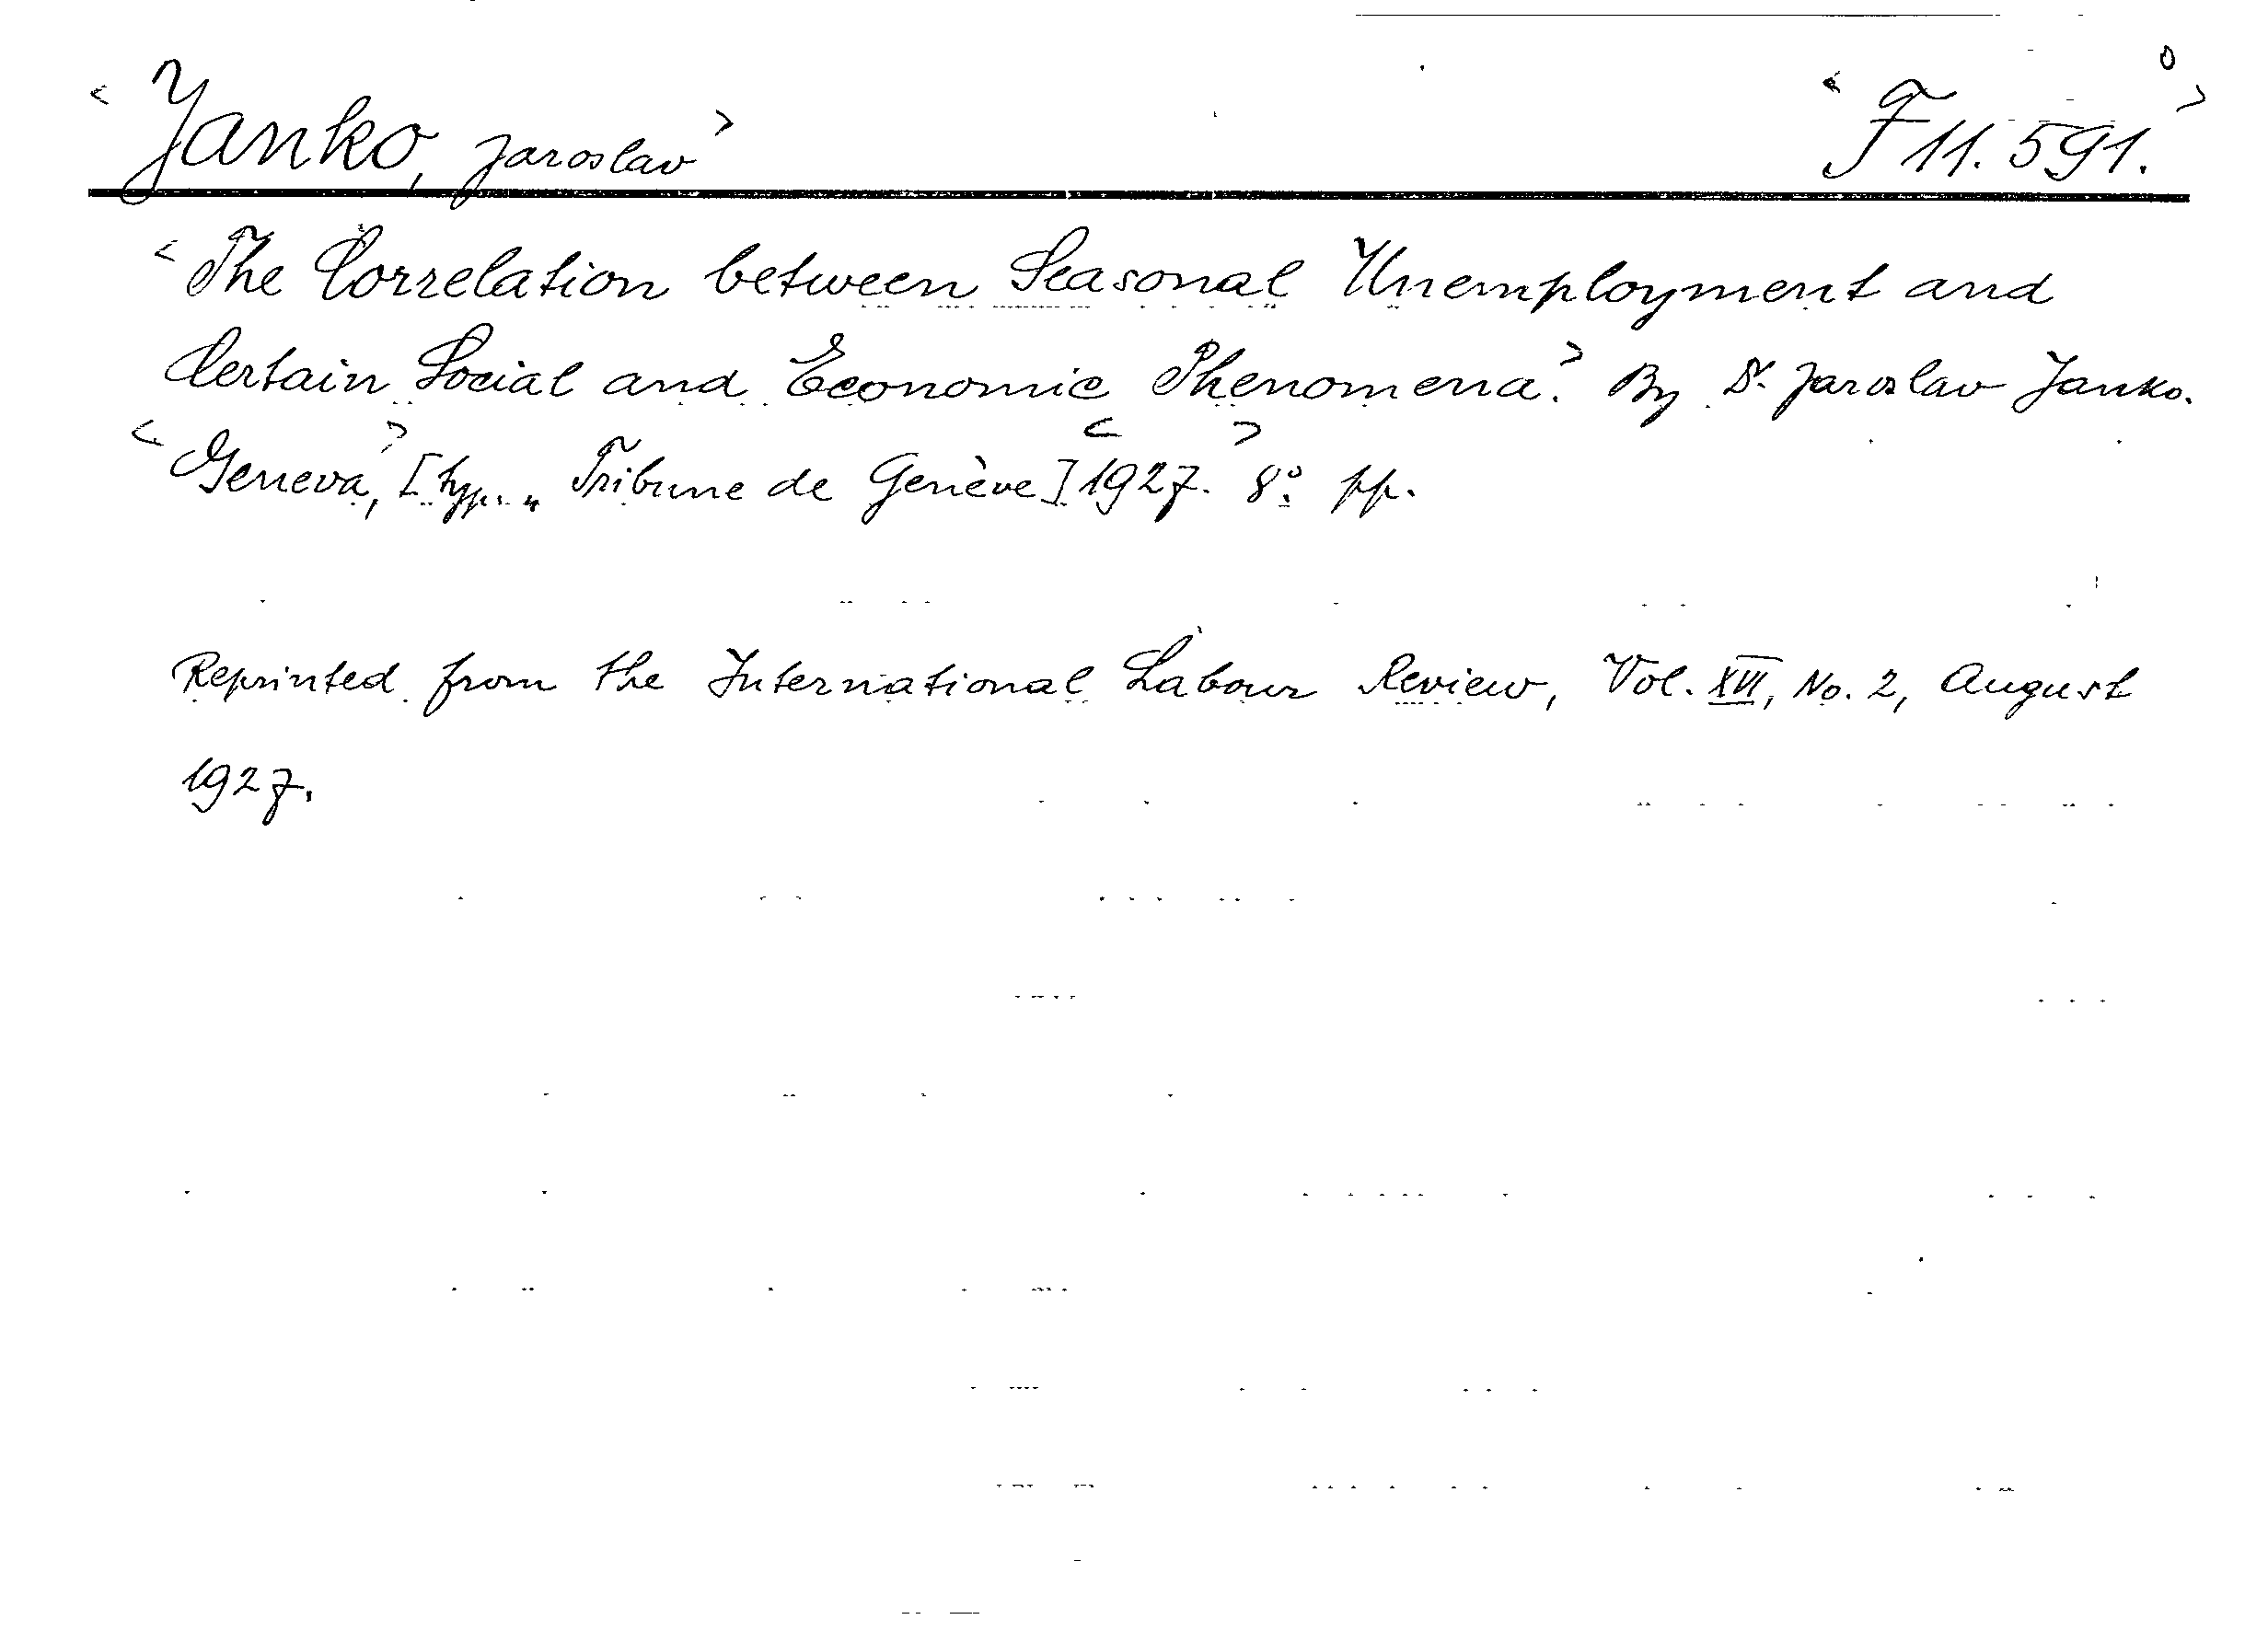 <Janko, Jaroslav> <F 11.591.>
<The Correlation between Seasonal Unemployment and
Certain Social and Economic Phenomena.> By Dr. Jaroslav Janko.
<Geneva,> [typ. „Tribune de Genève] <1927.> 8° pp.
Reprinted from the International Labour Review, Vol. XVI, No. 2, August
1927.